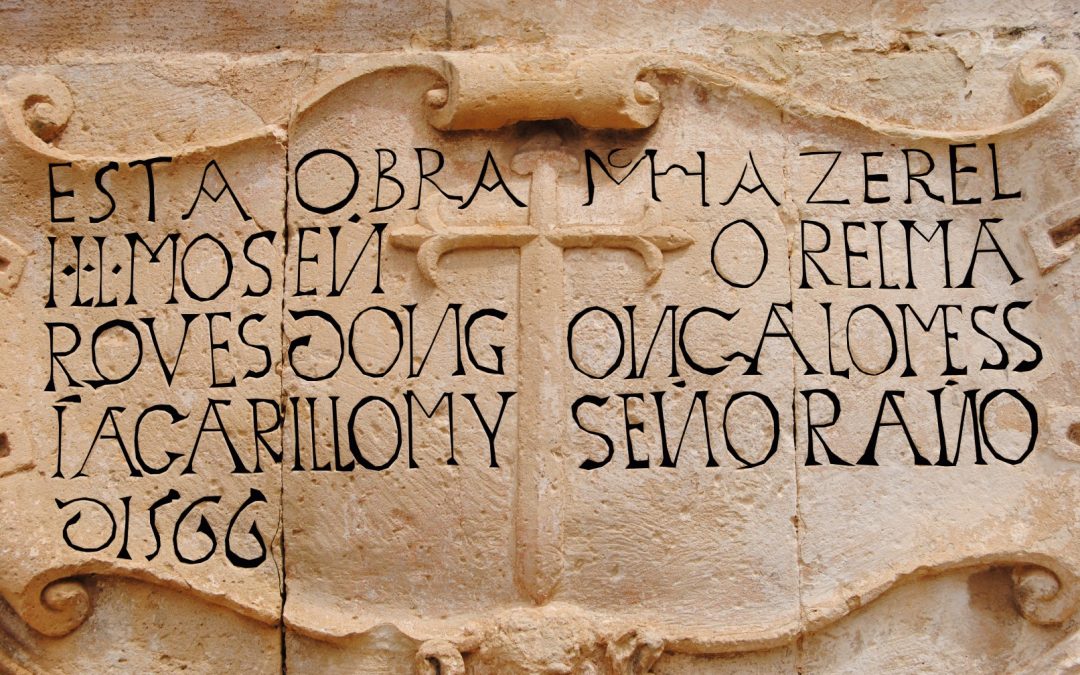 ESTA OBRA MHAZEREL
I·LL·MOSEÑ ORELMA
ROVES DONG ONCALOMESS
IACARILLOMY SEÑORAÑO
D1566